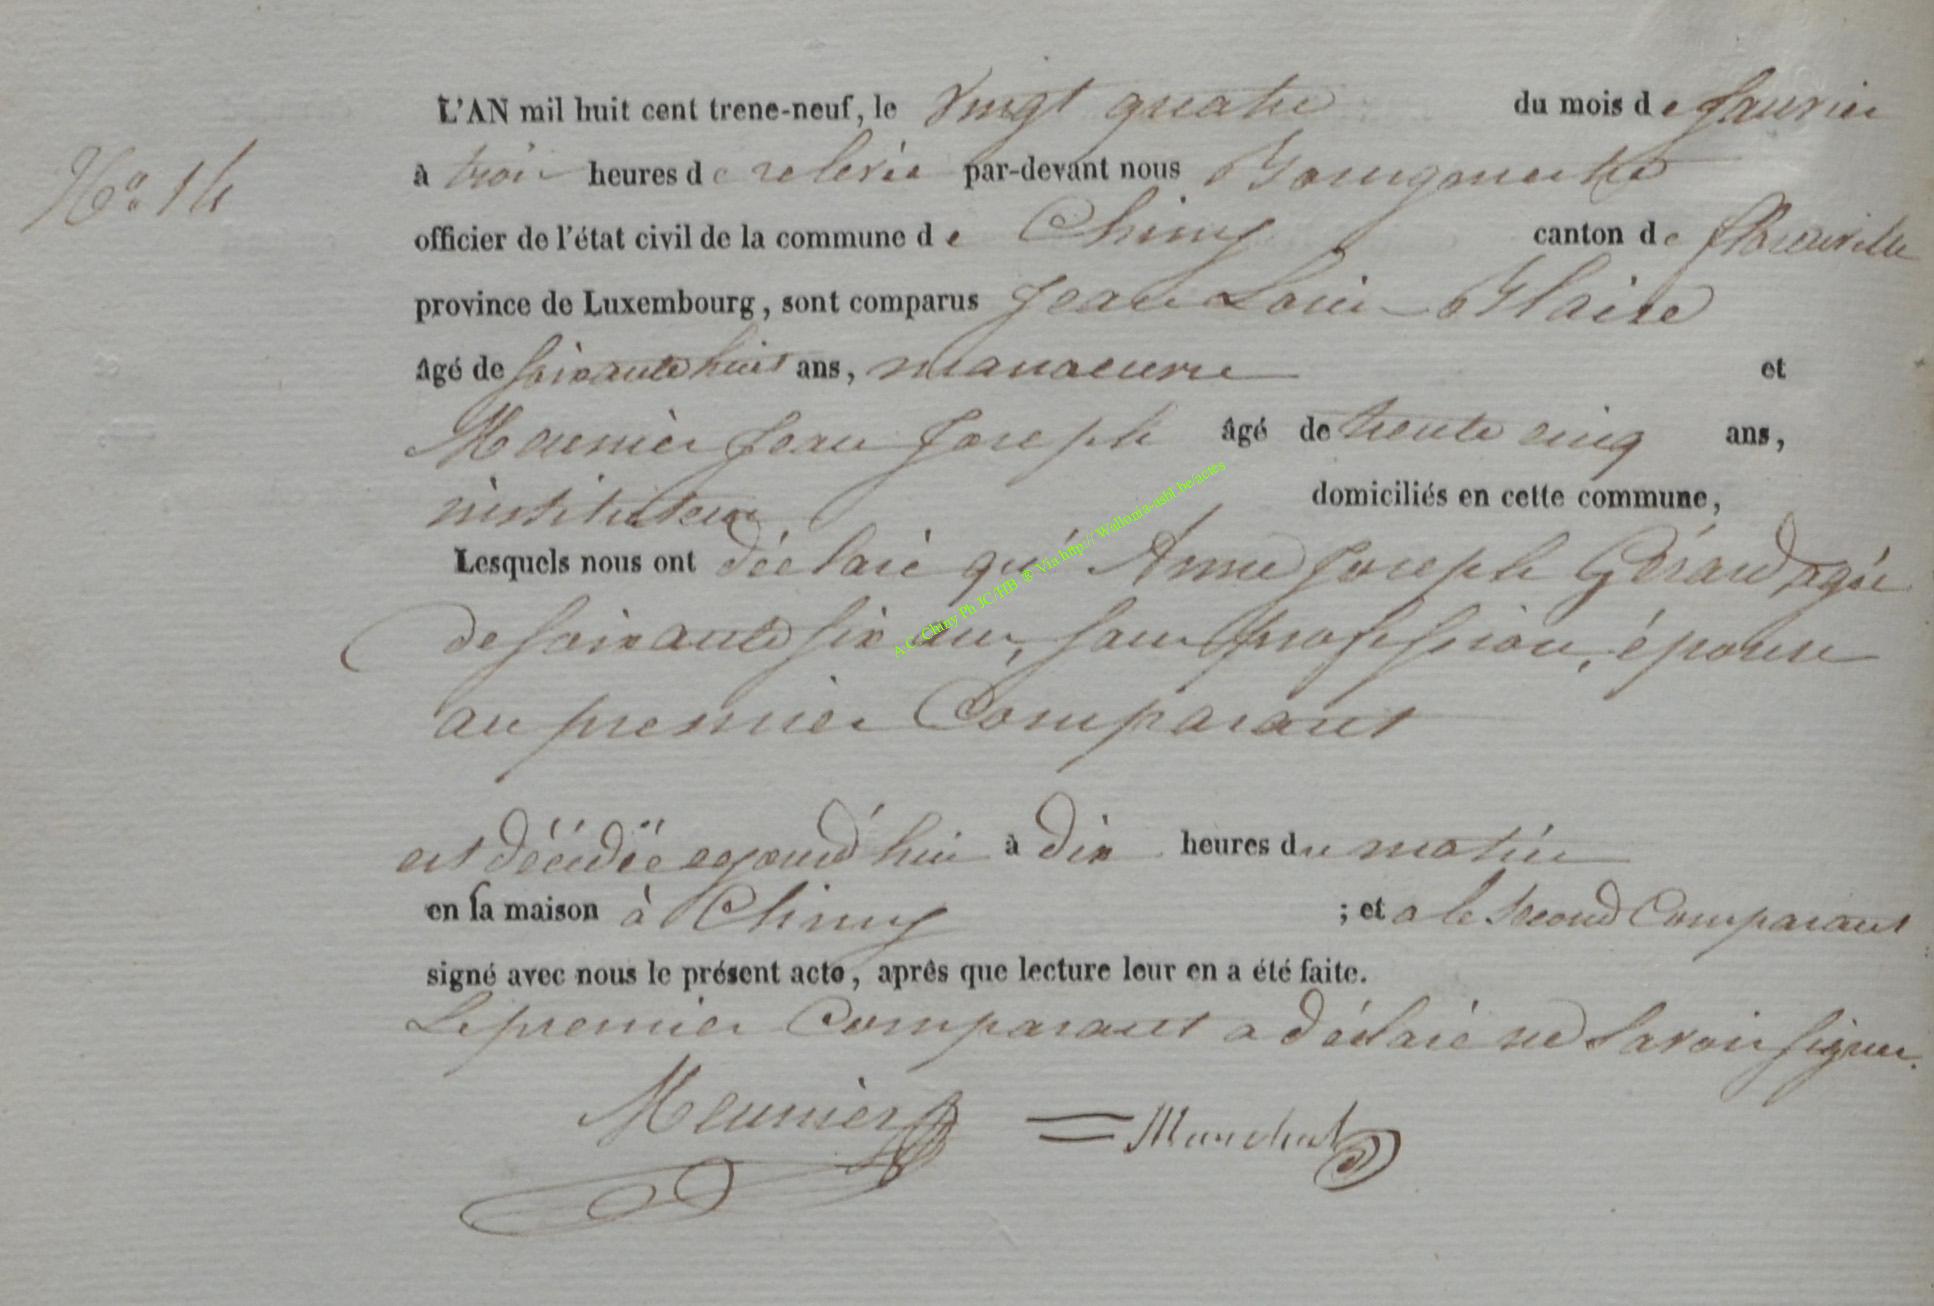 L'AN mil huit cent trene-neuf, le vingt quatre du mois de janvier
N° 14
à trois heures de relevée par-devant nous Bourgmestre
officier de l'état civil de la commune de Chiny canton de florenville
province de Luxembourg, sont comparus Jean Louis Blaise
âgé de soixante huit ans, manoeuvre et
Meunier Jean Joseph âgé de trente cinq ans,
instituteur domiciliés en cette commune,
Lesquels nous ont déclaré qu' Anne Joseph Gérard, agée
de soixante six ans, sans profession, épouse
au premier Comparant
est décédée aujourd'hui à dix heures du matin
en sa maison à Chiny ; et a le second Comparant
signé avec nous le présent acte, après que lecture leur en a été faite.
Le premier Comparant a déclaré ne savoir signer.
Meunier = Marchal
A.C. Chiny Ph JC/HB ® Via http:// Wallonia-asbl.be/actes